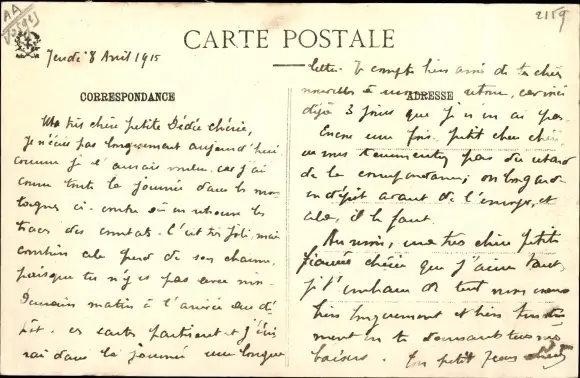 AA
2159
CARTE POSTALE
Jeudi 8 Avril 1915
CORRESPONDANCE
ADRESSE
Ma très chère petite Dédée Chérie,
Je n'écris pas longuement aujourd'hui
comme je l'aurais voulu, car j'ai
couru toute la journée dans les mon-
tagnes ci-contre où on retrouve les
traces des combats. C'est très joli, mais
combien cela perd de son charme,
puisque tu n'y es pas avec moi.
Demain matin à l'arrivée au dé-
pôt, ces cartes partiront et j'écri-
rai dans la journée une longue
lettre. Je compte bien avoir de tes chères
nouvelles à mon retour, car voici
déjà 3 jours que je n'en ai pas.
Encore une fois, petit chou chéri,
ne nous tourmentez pas du retard
de la correspondance; on la garde
en dépôt avant de l'envoyer, et
cela, il le faut.
Au revoir, ma très chère petite
fiancée chérie que j'aime tant,
je t'embrasse de tout mon cœur
bien longuement et bien tendre-
ment en te donnant tous mes
baisers. Ton petit Jean